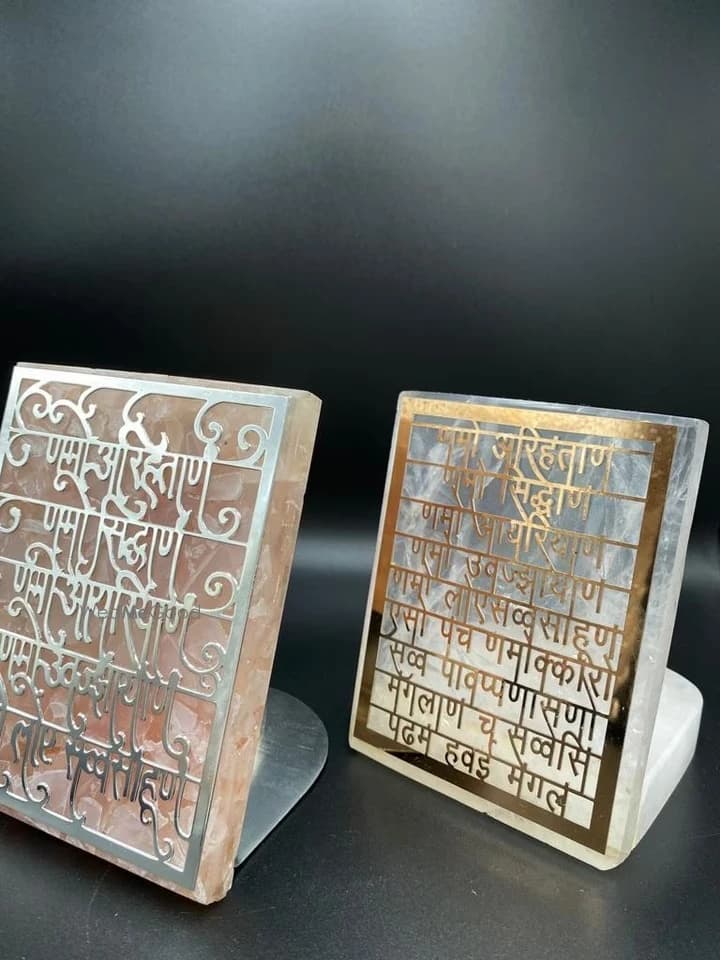 णमो अरिहंताणं
णमो सिद्धाणं
णमो आयरियाणं
णमो उवज्झायाणं
लोए सव्वसाहूणं
WedMeGood
णमो अरिहंताणं
णमो सिद्धाणं
णमो आयरियाणं
णमो उवज्झायाणं
णमो लोएसव्वसाहूणं
एसो पंच णमोक्कारो
सव्व पावप्पणासणो
मंगलाणं च सव्वेसिं
पढमं हवइ मंगलं